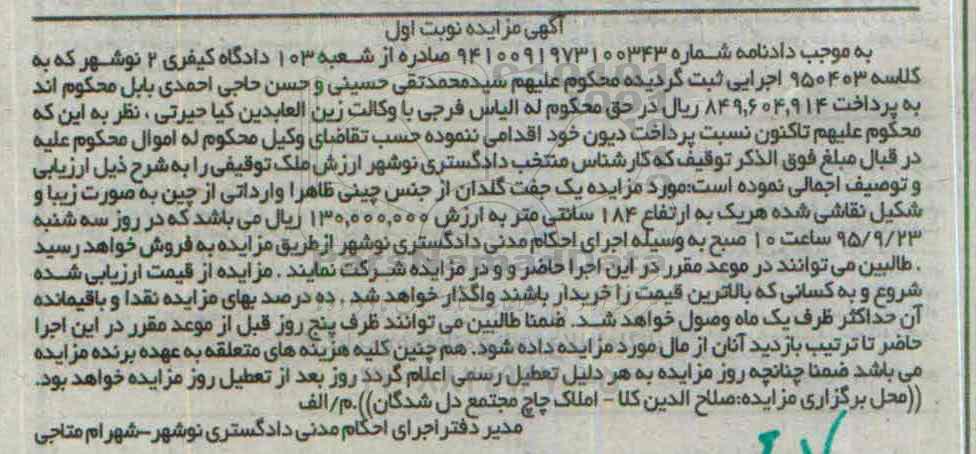 آگهی مزایده نوبت اول
به موجب دادنامه شماره ۹۴۱۰۰۹۱۹۷۳۱۰۰۳۴۳ صادره از شعبه ۱۰۳ دادگاه کیفری ۲ نوشهر که به
کلاسه ۹۵۰۴۰۳ اجرایی ثبت گردیده محکوم علیهم سیدمحمدتقی حسینی و حسن حاجی احمدی بابل محکوم اند
به پرداخت ۸۴۹,۶۰۴,۹۱۴ ریال در حق محکوم له الیاس فرجی با وکالت زین العابدین کیا حیرتی ، نظر به این که
محکوم علیهم تاکنون نسبت پرداخت دیون خود اقدامی ننموده حسب تقاضای وکیل محکوم له اموال محکوم علیه
در قبال مبلغ فوق الذکر توقیف که کارشناس منتخب دادگستری نوشهر ارزش ملک توقیفی را به شرح ذیل ارزیابی
و توصیف اجمالی نموده است:مورد مزایده یک جفت گلدان از جنس چینی ظاهرا وارداتی از چین به صورت زیبا و
شکیل نقاشی شده هریک به ارتفاع ۱۸۴ سانتی متر به ارزش ۱۳۰,۰۰۰,۰۰۰ ریال می باشد که در روز سه شنبه
۹۵/۹/۲۳ ساعت ۱۰ صبح به وسیله اجرای احکام مدنی دادگستری نوشهر ازطریق مزایده به فروش خواهد رسید
. طالبین می توانند در موعد مقرر در این اجرا حاضر و و در مزایده شرکت نمایند . مزایده از قیمت ارزیابی شده
شروع و به کسانی که بالاترین قیمت را خریدار باشند واگذار خواهد شد . ده درصد بهای مزایده نقدا و باقیمانده
آن حداکثر ظرف یک ماه وصول خواهد شد. ضمنا طالبین می توانند ظرف پنج روز قبل از موعد مقرر در این اجرا
حاضر تا ترتیب بازدید آنان از مال مورد مزایده داده شود. هم چنین کلیه هزینه های متعلقه به عهده برنده مزایده
می باشد ضمنا چنانچه روز مزایده به هر دلیل تعطیل رسمی اعلام گردد روز بعد از تعطیل روز مزایده خواهد بود.
((محل برگزاری مزایده:صلاح الدین کلا - املاک چاچ مجتمع دل شدگان)).م/الف
مدیر دفتر اجرای احکام مدنی دادگستری نوشهر-شهرام متاجی